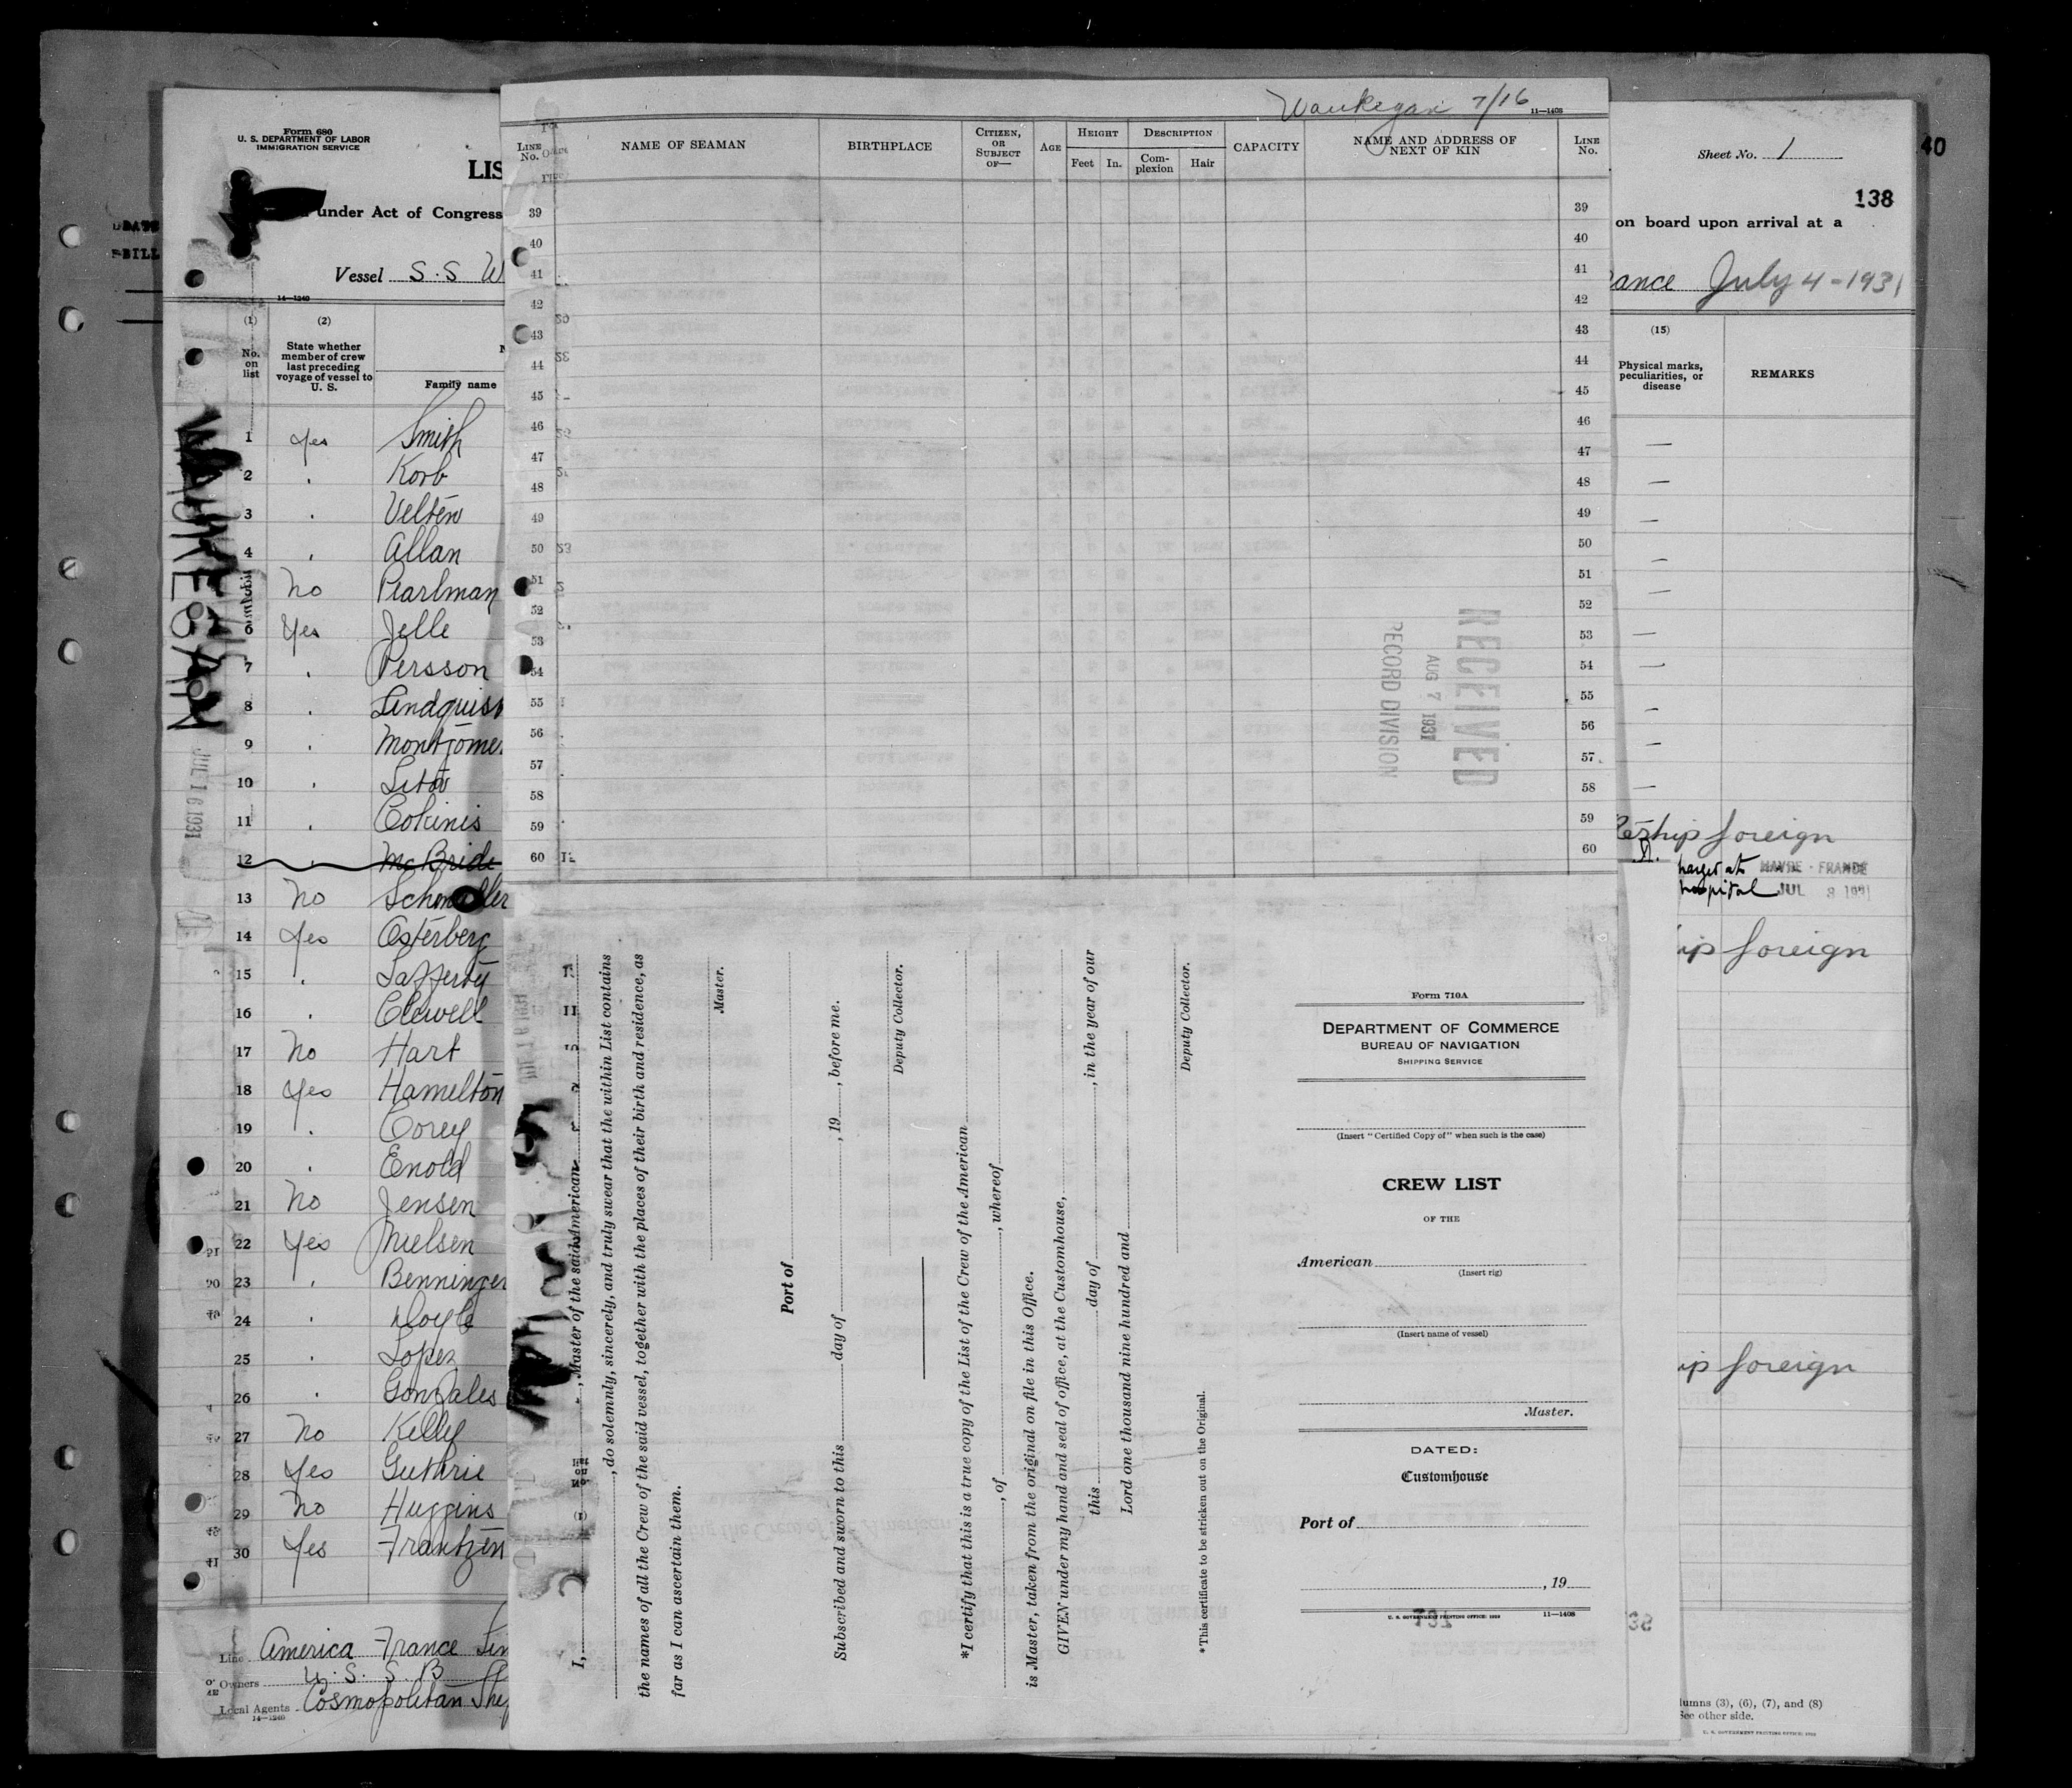 Form 680
U. S. DEPARTMENT OF LABOR
IMMIGRATION SERVICE
LIS
under Act of Congress
Vessel S.S W
14—1240
(1)
(2)
No. on list
State whether member of crew last preceding voyage of vessel to U. S.
Family name
1 yes Smith
2 " Korb
3 " Velten
4 " Allan
5 No Pearlman
6 Yes Jelle
7 " Persson
8 " Lindquist
9 " Montgomer
10 "
11 " Cokinis
12 " McBride
13 No
14 Yes Osterberg
15 " Lafferty
16 " Clewell
17 No Hart
18 Yes Hamelton
19 " Corey
20 " Enold
21 No Jensen
22 Yes Nielsen
23 " Benninger
24 " Doyle
25 " Lopez
26 " Gonzales
27 No Kelly
28 Yes Guthrie
29 No Huggins
30 Yes Frantzen
WAUKEGAN
JUL 16 1931
Line America France Lin
Owners U. S. S. B
Local Agents Cosmopolitan Ship
14—1240
Waukegan 7/16
11—1408
LINE No.
NAME OF SEAMAN
BIRTHPLACE
CITIZEN, OR SUBJECT OF—
AGE
HEIGHT
Feet
In.
DESCRIPTION
Complexion
Hair
CAPACITY
NAME AND ADDRESS OF NEXT OF KIN
LINE No.
39 39
40 40
41 41
42 42
43 43
44 44
45 45
46 46
47 47
48 48
49 49
50 50
51 51
52 52
53 53
54 54
55 55
56 56
57 57
58 58
59 59
60 60
RECEIVED
AUG 7 1931
RECORD DIVISION
I, , Master of the said American
, do solemnly, sincerely, and truly swear that the within List contains
the names of all the Crew of the said vessel, together with the places of their birth and residence, as
far as I can ascertain them.
Master.
Port of
Subscribed and sworn to this day of , 19 , before me.
Deputy Collector.
*I certify that this is a true copy of the List of the Crew of the American
, of , whereof
is Master, taken from the original on file in this Office.
GIVEN under my hand and seal of office, at the Customhouse,
this day of , in the year of our
Lord one thousand nine hundred and
Deputy Collector.
*This certificate to be stricken out on the Original.
Form 710A
DEPARTMENT OF COMMERCE
BUREAU OF NAVIGATION
SHIPPING SERVICE
(Insert "Certified Copy of" when such is the case)
CREW LIST
OF THE
American
(Insert rig)
(Insert name of vessel)
Master.
DATED:
Customhouse
Port of
, 19
U. S. GOVERNMENT PRINTING OFFICE: 1929 11—1408
Sheet No. 1
40
138
on board upon arrival at a
ance July 4-1931
(15)
Physical marks, peculiarities, or disease
REMARKS
foreign
hospital
HAVRE - FRANCE
JUL 8 1931
ip foreign
ip foreign
lumns (3), (6), (7), and (8)
See other side.
U. S. GOVERNMENT PRINTING OFFICE: 1929